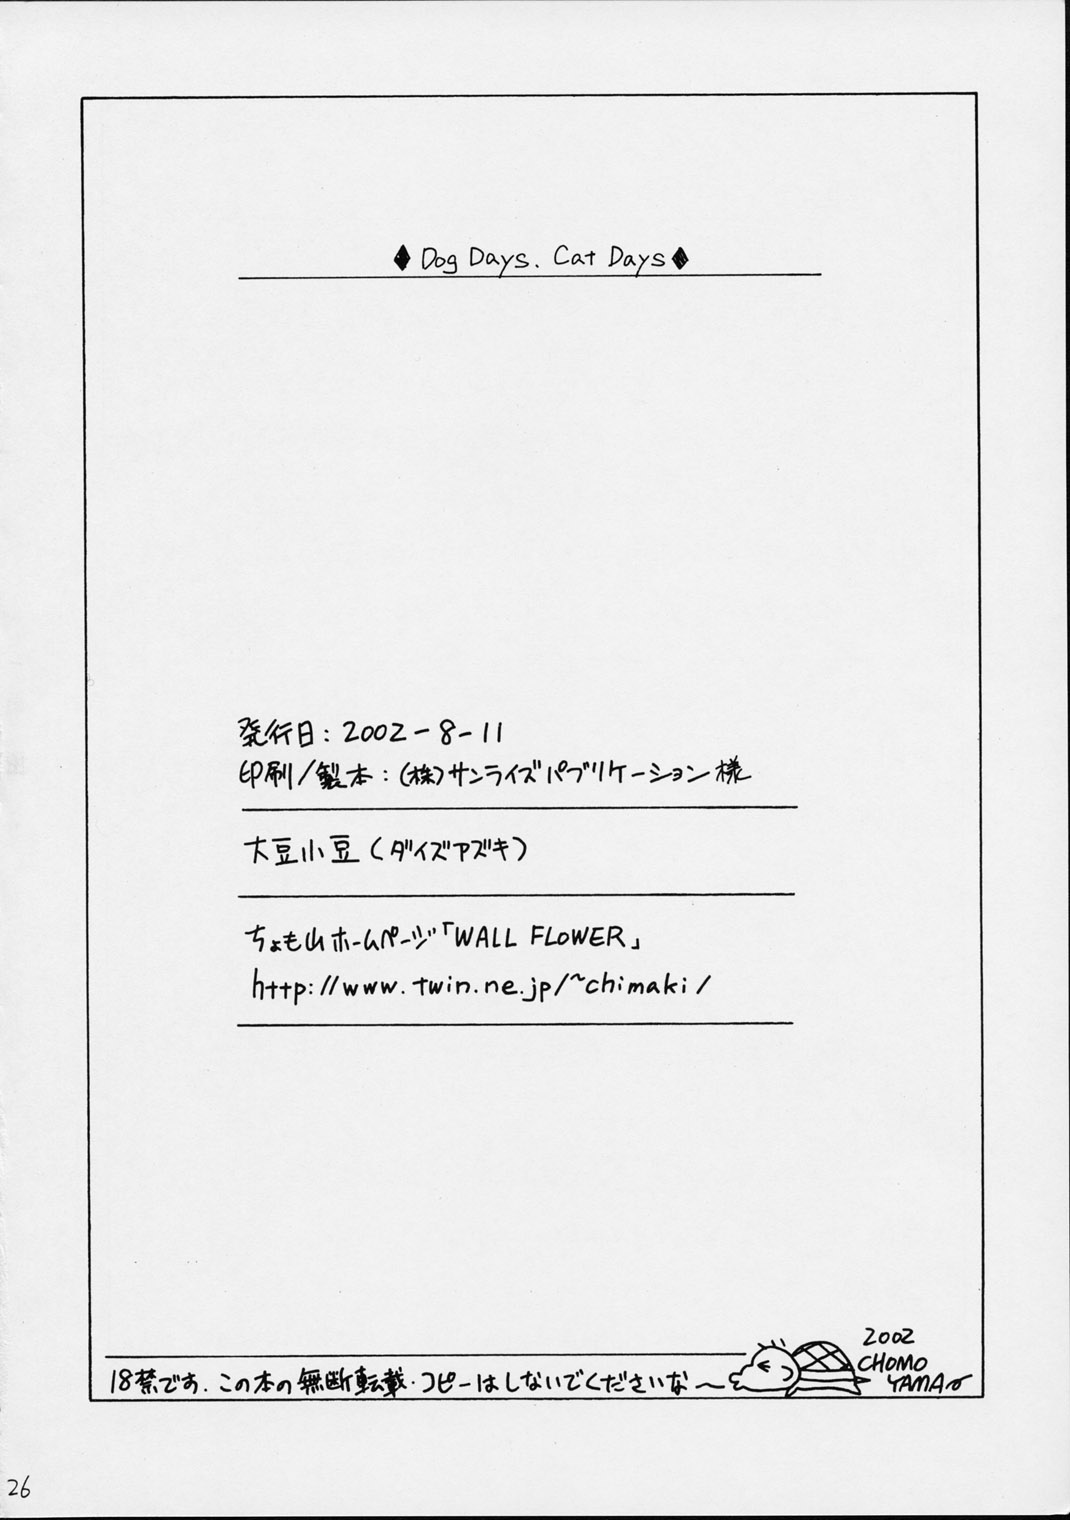 ♦Dog Days. Cat Days♦
発行日：2002-8-11
印刷／製本：(株)サンライズパブリケーション様
大豆小豆(ダイズアズキ)
ちょも山ホームページ「WALL FLOWER」
http://www.twin.ne.jp/~chimaki/
2002
CHOMO
YAMA
18禁です．この本の無断転載・コピーはしないでくださいな〜
26